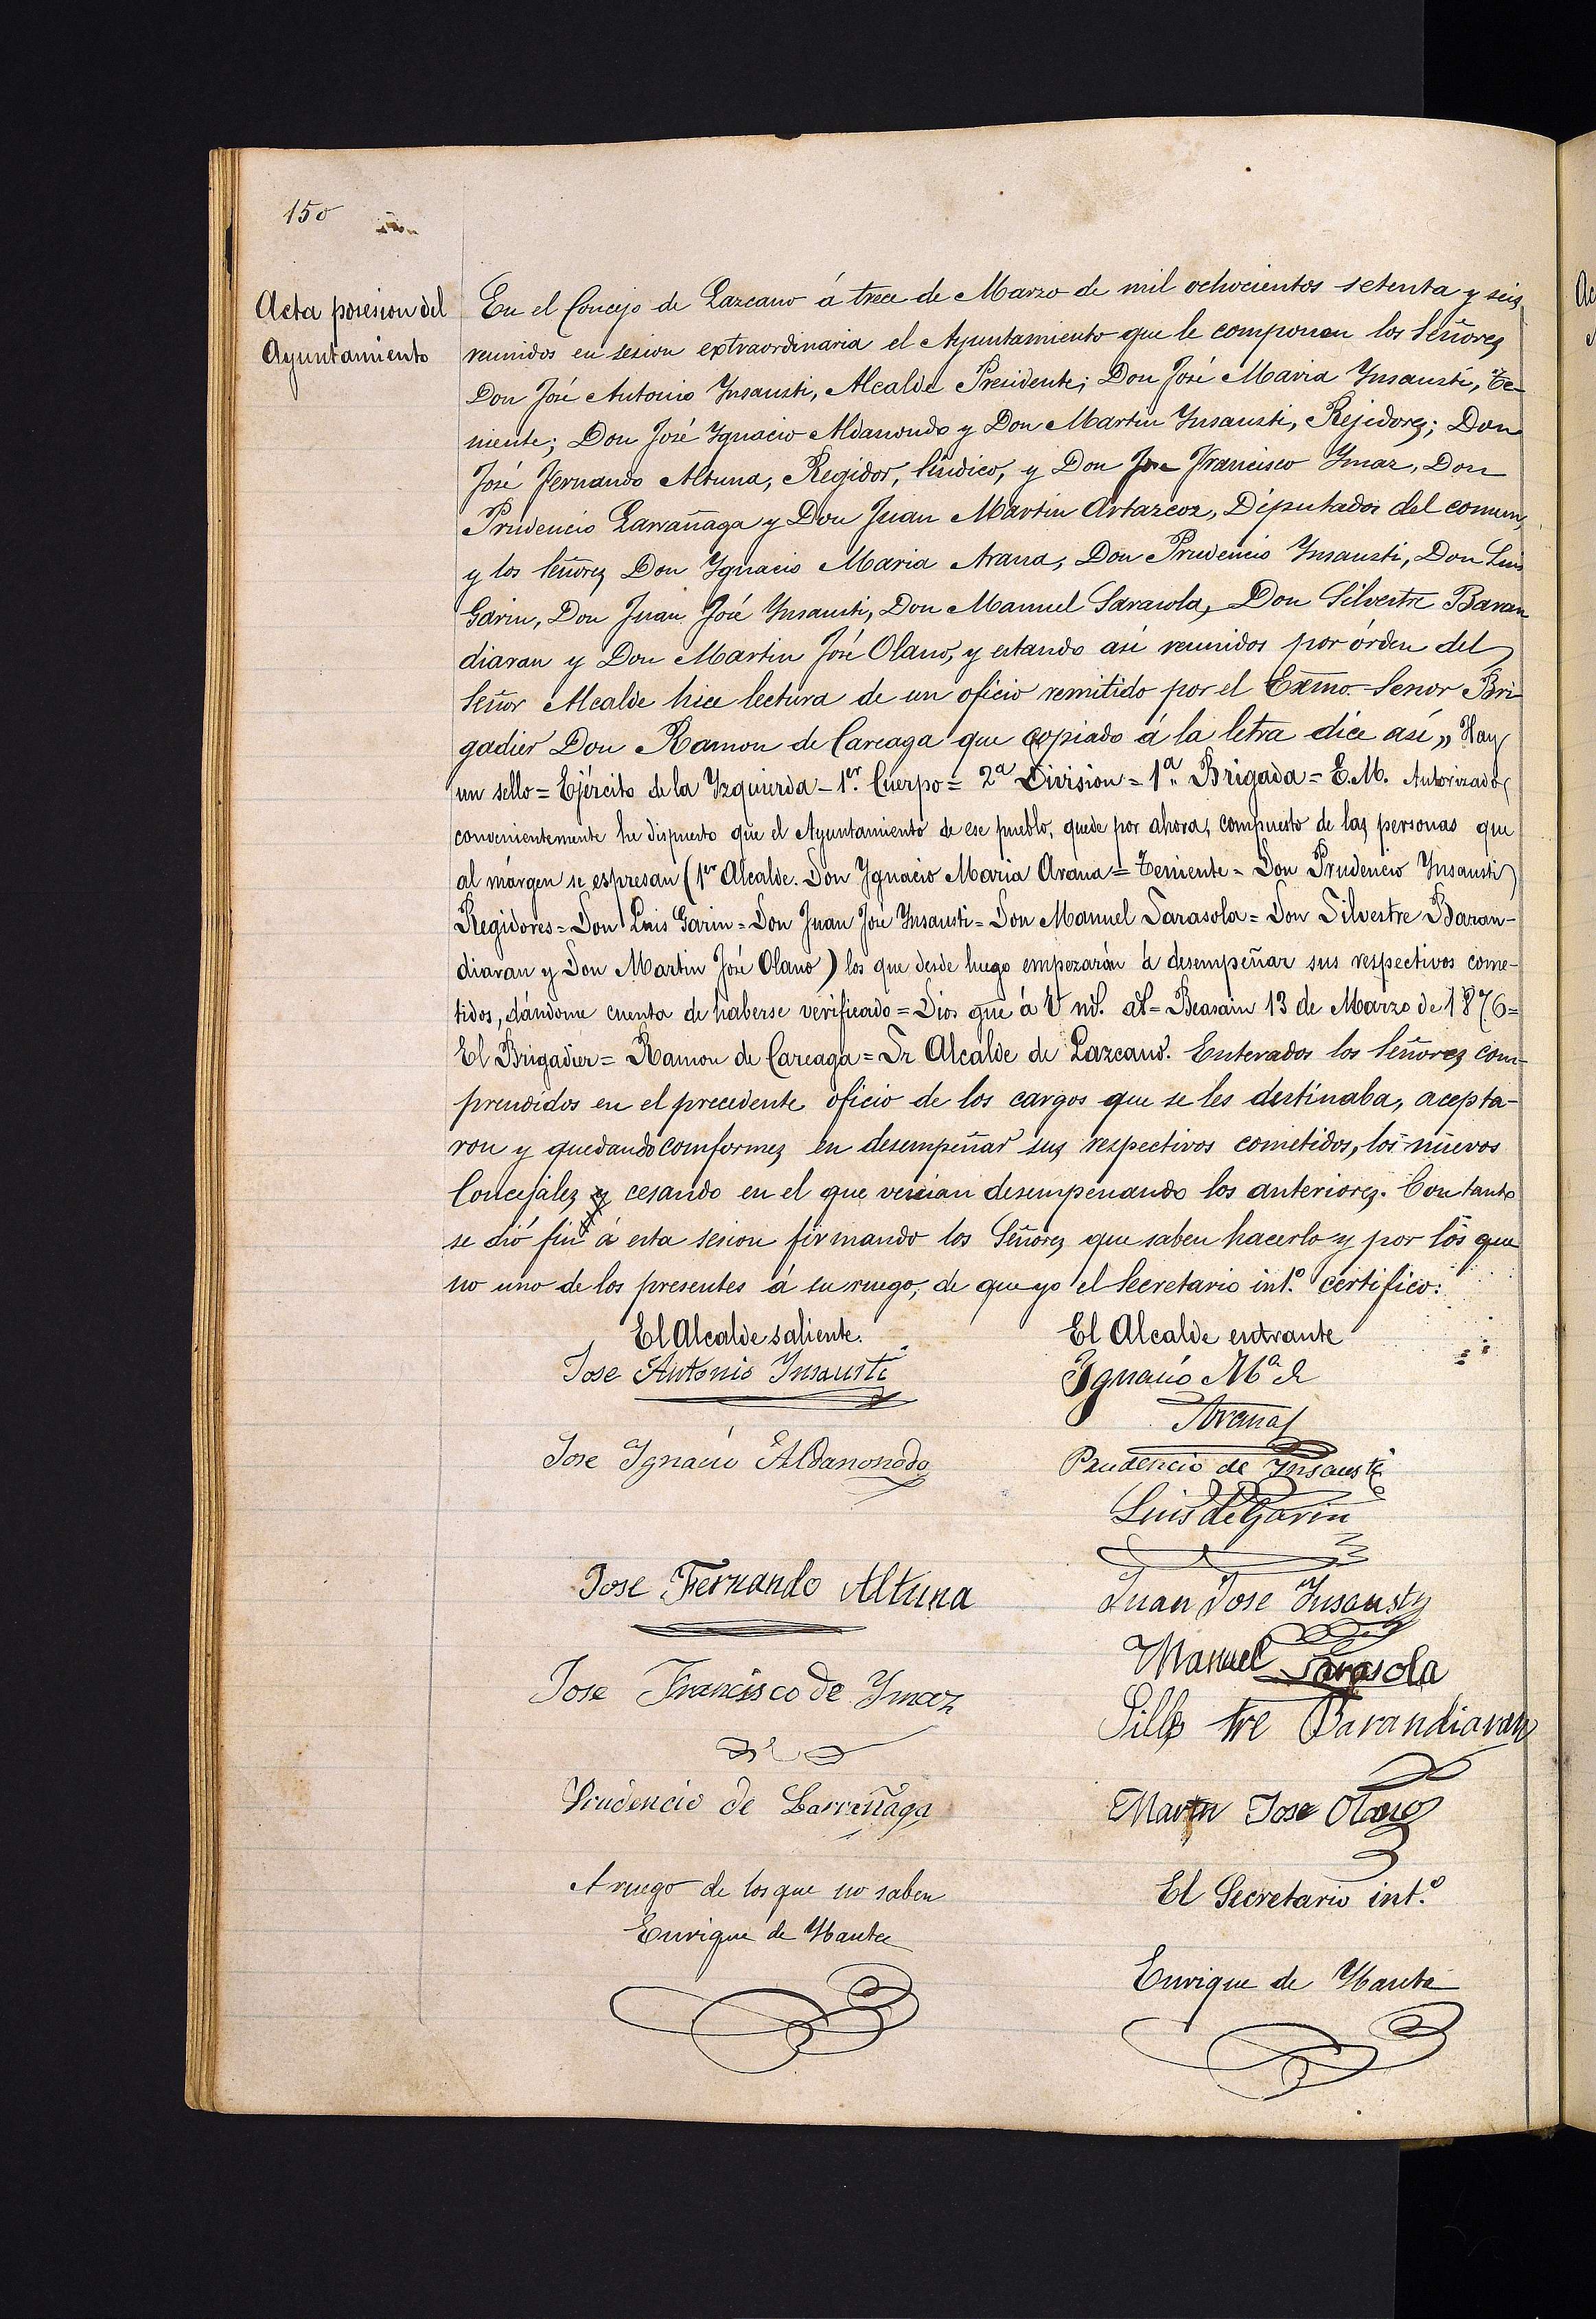 150
Acta posesion del
Ayuntamiento
En el Concejo de Lazcano á trece de Marzo de mil ochocientos setenta y seis,
reunidos en sesion extraordinaria el Ayuntamiento que le componen los Señores
Don José Antonio Ynsausti, Alcalde Presidente; Don José Maria Ynsausti, Te-
niente; Don José Ygnacio Aldanondo y Don Martin Ynsausti, Rejidores; Don
José Fernando Altuna, Regidor, Sindico, y Don Jose Francisco Ymaz, Don
Prudencio Larrañaga y Don Juan Martin Artazcoz, Diputados del comun,
y los Señores Don Ygnacio Maria Arana, Don Prudencio Ynsausti, Don Luis
Garin, Don Juan José Ynsausti, Don Manuel Sarasola, Don Silvestre Baran
diaran y Don Martin José Olano, y estando asi reunidos por órden del
Señor Alcalde hice lectura de un oficio remitido por el Exmo. Señor Bri-
gadier Don Ramon de Careaga que copiado á la letra dice asi „ Hay
un sello = Ejército de la Yzquierda - 1er. Cuerpo = 2a Division = 1a. Brigada = E.M. Autorizado
convenientemente he dispuesto que el Ayuntamiento de ese pueblo, quede por ahora, compuesto de las personas que
al márgen se espresan (1er Alcalde. Don Ygnacio Maria Arana = Teniente = Don Prudencio Ynsausti
Regidores = Don Luis Garin = Don Juan José Ynsausti = Don Manuel Sarasola = Don Silvestre Baran-
diaran y Don Martin José Olano) los que desde luego empezarán á desempeñar sus respectivos come-
tidos, dándome cuenta de haberse verificado = Dios gue á V md. as = Beasain 13 de Marzo de 1876 =
El Brigadier = Ramon de Careaga = Sr Alcalde de Lazcano. Enterados los Señores com-
prendidos en el precedente oficio de los cargos que se les destinaba, acepta-
ron y quedando comformes en desempeñar sus respectivos cometidos, los nuevos
Concejales y cesando en el que venian desempenando los anteriores. Con tanto
se dió fin á esta sesion firmando los Señores que saben hacerlo y por los que
no uno de los presentes á su ruego, de que yo el Secretario int.o certifico:
El Alcalde saliente.
Jose Antonio Ynsausti
Jose Ygnacio Aldanondo
Jose Fernando Altuna
Jose Francisco de Ymaz
Prudencio de Larrañaga
A ruego de los que no saben
Enrique de
El Alcalde entrante
Ygnacio Ma de
Arana
Prudencio de Ynsausti
Luis de Garin
Juan Jose Insausty
Manuel Sarasola
Silbestre Barandiaran
Martin Jose Olano
El Secretario int.o
Enrique de